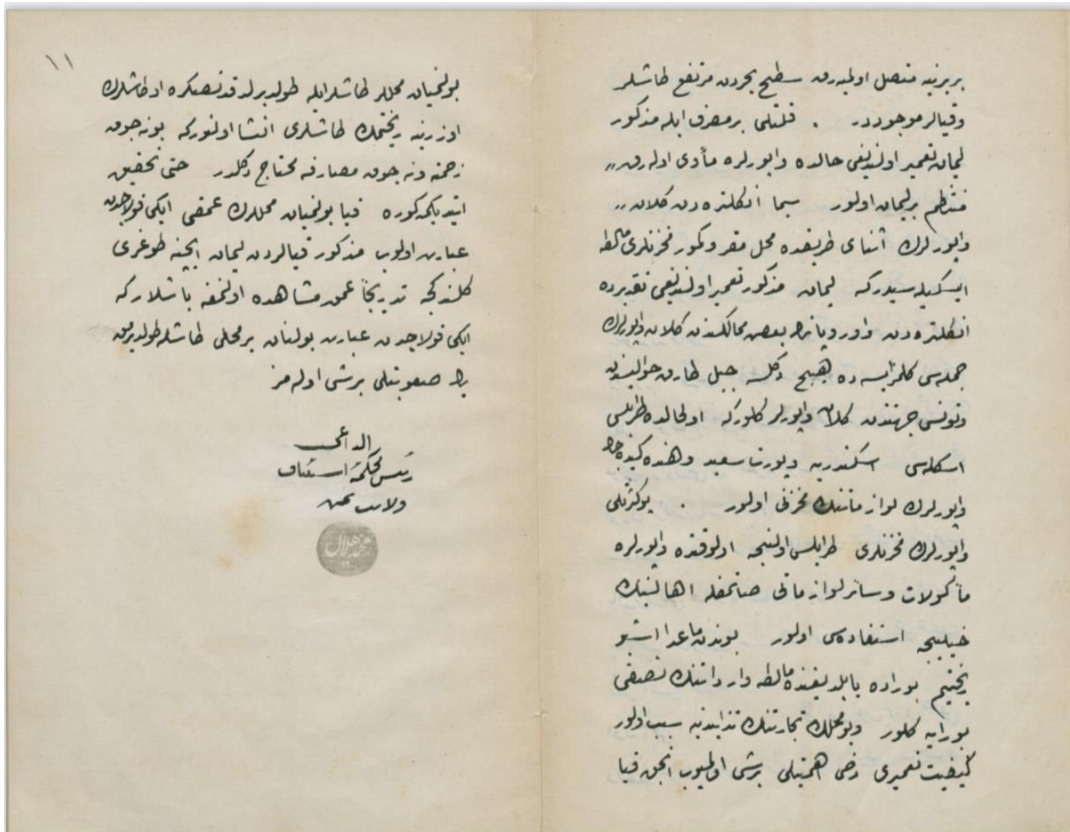 بربرينه متصل اوليه‌رق سطح بحردن مرتفع طاشلر
وقيالر موجوددر . قلتلى بر مصرف ايله مذكور
ليمان تعمير اولنديغى حالده واپورلره مأوى اوله‌رق
منتظم بر ليمان اولور سيما انكلتره‌دن كلان
واپورلرك اثناى طريقنده محل مقر وكمور مخزنلرى مالطه
ايسكله‌سيدركه ليمان مذكور تعمير اولنديغى تقديرده
انكلتره‌دن واوروپانك بعض ممالكندن كلان واپورلرك
جمله‌سى كلمز ايسه‌ده هيچ دكلسه جبل طارق حواليسندن
وتونس جهتندن كلان واپورلر كلوركه اولحالده طرابلس
اسكله‌سى اسكندريه وپورت سعيد وهنده كيده‌جك
واپورلرك لوازماتنك مخزنى اولور . بو كثرتلى
واپورلرك مخزنلرى طرابلس اولنيجه اولوقتده واپورلره
مأكولات وسائر لوازماتى صاتمغله اهالينك
خيليجه استفاده‌سى اولور بوندن ماعدا اشبو
ريختيم بوراده ياپلديغنده مالطه وارداتنك نصفى
بورايه كلور وبو محلك تجارتنك تزايدينه سبب اولور
كيفيت تعميرى دخى اهميتلى برشى اولميوب انجق قيا
١١
بولنميان محللر طاشلر ايله طولديرلدقدنصكره او طاشلرك
اوزرينه ريختمك طاشلرى انشا اولنوركه بو نه چوق
زحمته ونه چوق مصارفه محتاج دكلدر حتى تحقيق
ايتديكمه كوره قيا بولنميان محللرك عمقى ايكى قولاجدن
عبارت اولوب مذكور قيالردن ليمان ايچنه طوغرى
كلندكجه تدريجاً عمق مشاهده اولنمغه باشلاركه
ايكى قولاجدن عبارت بولنان بر محلى طاشله طولديرمق
پك صعوبتلى برشى اوله‌مز
الداعى
رئيس محكمة استيناف
ولايت
محمد هلال